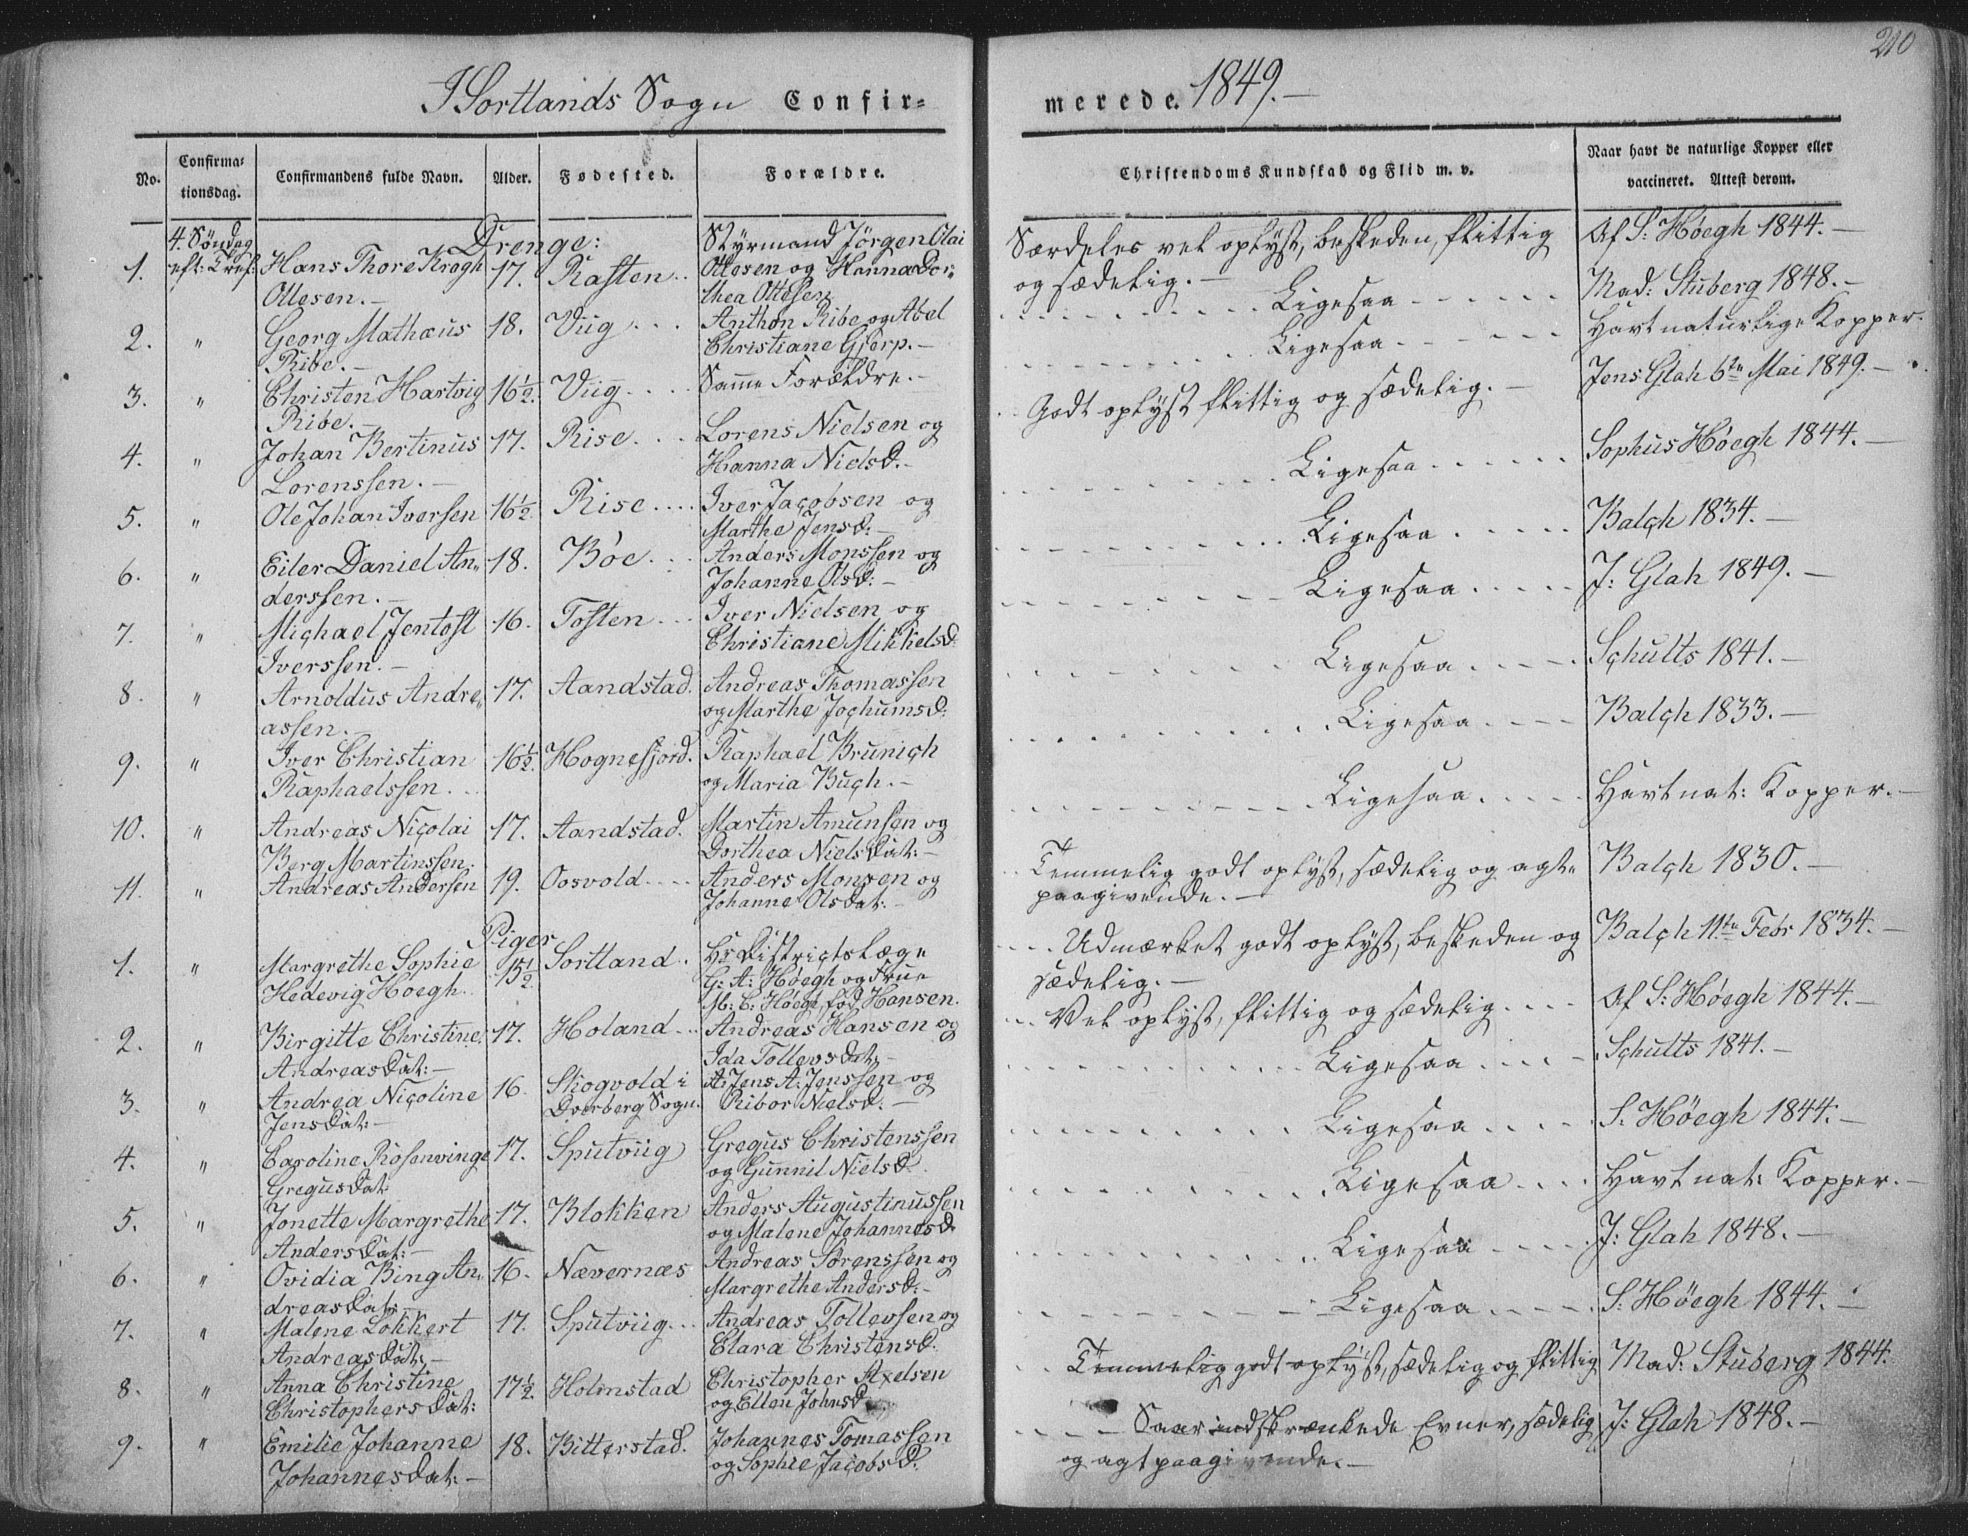 210
I Sortlands Sogn Confir-
merede. 1849.-
No. Confirma-tionsdag. Confirmandens fulde Navn. Alder. Fødested. Forældre.
Christendoms Kundskab og Flid m. v. Naar havt de naturlige Kopper eller vaccineret. Attest derom.
Drenge:
1. 4. Søndag eft: Tref: Hans Thore Krogh 17. Rasten .. Styrmand Jørgen Olai
Ottesen.- Ottesen og Hanna Dor-
thea Ottesen
2. " Georg Mathæus 18. Viig ... Anthon Ribe og Abel
Ribe.- Christiane Gjerp.-
3. " Christen Hartvig 16½. Viig .... Samme Forældre.-
Ribe.-
4. " Johan Bertinus 17. Rise .... Lorens Nielsen og
Lorenssen.- Hanna Nielsd.-
5. " Ole Johan Iversen 16½. Rise .... Iver Jacobsen og
Marthe Jensd:-
6. " Eiler Daniel An- 18. Bøe .... Anders Monssen og
derssen.- Johanne Olsd:-
7. " Michael Jentoft 16. Tosten ... Iver Nielsen og
Iverssen.- Christiane Mikkelsd:
8. " Arnoldus Andre- 17. Aandstad. Andreas Thomassen
assen. og Marthe Jochumsd:
9. " Iver Christian 16½ Hognefjord. Raphael Brunich
Raphaelssen... og Maria Buch.-
10. " Andreas Nicolai 17. Aandstad. Martin Amunsen og
Berg Martinssen. Dorthea Niels Dat:-
11. " Andreas Andersen 19. Oosvold .... Anders Monsen og
Johanne Ols Dat:-
Piger
1. " Margrethe Sophie 15½ Sortland. Hr Districtslæge
Hedevig Høegh. G: A: Høegh og Frue
M: C: Høegh, fød Hansen.
2. " Birgitte Christine 17. Holand ... Andreas Hansen og
Andreas Dat:- Ida Tollevs Dat:-
3. " Andrea Nicoline 16. Skogvold i A: Jens A: Jenssen og
Jens Dat:- Dverberg Sogn. Ribor Nielsd.-
4. " Caroline Rosenvinge 17. Sputviig Gregus Christenssen
Gregus Dat: og Gunnil Nielsd.
5. " Jonette Margrethe 17. Blokken Anders Augustinussen
Anders Dat:- og Malene Johannesd
6. " Ovidia Bing An- 16. Nævernæs Andreas Sørenssen og
dreas Dat: Margrethe Andersd:-
7. " Malene Lokkert 17. Sputviig ... Andreas Tollevsen og
Andreas Dat:- Clara Christensd.
8. " Anna Christine 17½ Holmstad Christopher Axelsen
Christophers Dat: og Ellen Johnsd
9. " Emilie Johanne 18. Bitterstad. Johannes Tomassen
Johannes Dat:- og Sophie Jacobsd:
Særdeles vel oplyst, beskeden, flittig Af S: Høegh 1844.-
og sædelig.-
Ligesaa ...... Mad: Stuberg 1848.-
Ligesaa ...... Havt naturlige Kopper.
Godt oplyst flittig og sædelig.- Jens Glah 6te Mai 1849.-
Ligesaa ...... Sophus Høegh 1844.-
Ligesaa ..... Balch 1834.-
Ligesaa ..... J: Glah 1849.-
Ligesaa .... Schults 1841.-
Ligesaa .... Balch 1833.-
Ligesaa .... Havt nat: Kopper.-
Temmelig godt oplyst, sædelig og agt- Balch 1830.-
paagivende.-
Udmærket godt oplyst, beskeden og Balch 11te Febr 1834.-
sædelig.-
Vel oplyst, flittig og sædelig ... Af S: Høegh 1844.-
Ligesaa .... Schults 1841.-
Ligesaa .... S: Høegh 1844.-
Ligesaa .... Havt nat: Kopper.-
Ligesaa .... J: Glah 1848.-
Ligesaa .... S: Høegh 1844.-
Temmelig godt oplyst, sædelig og flittig Mad: Stuberg 1844.
Saare indskrænkede Evner, sædelig J: Glah 1848.-
og agtpaagivende.-